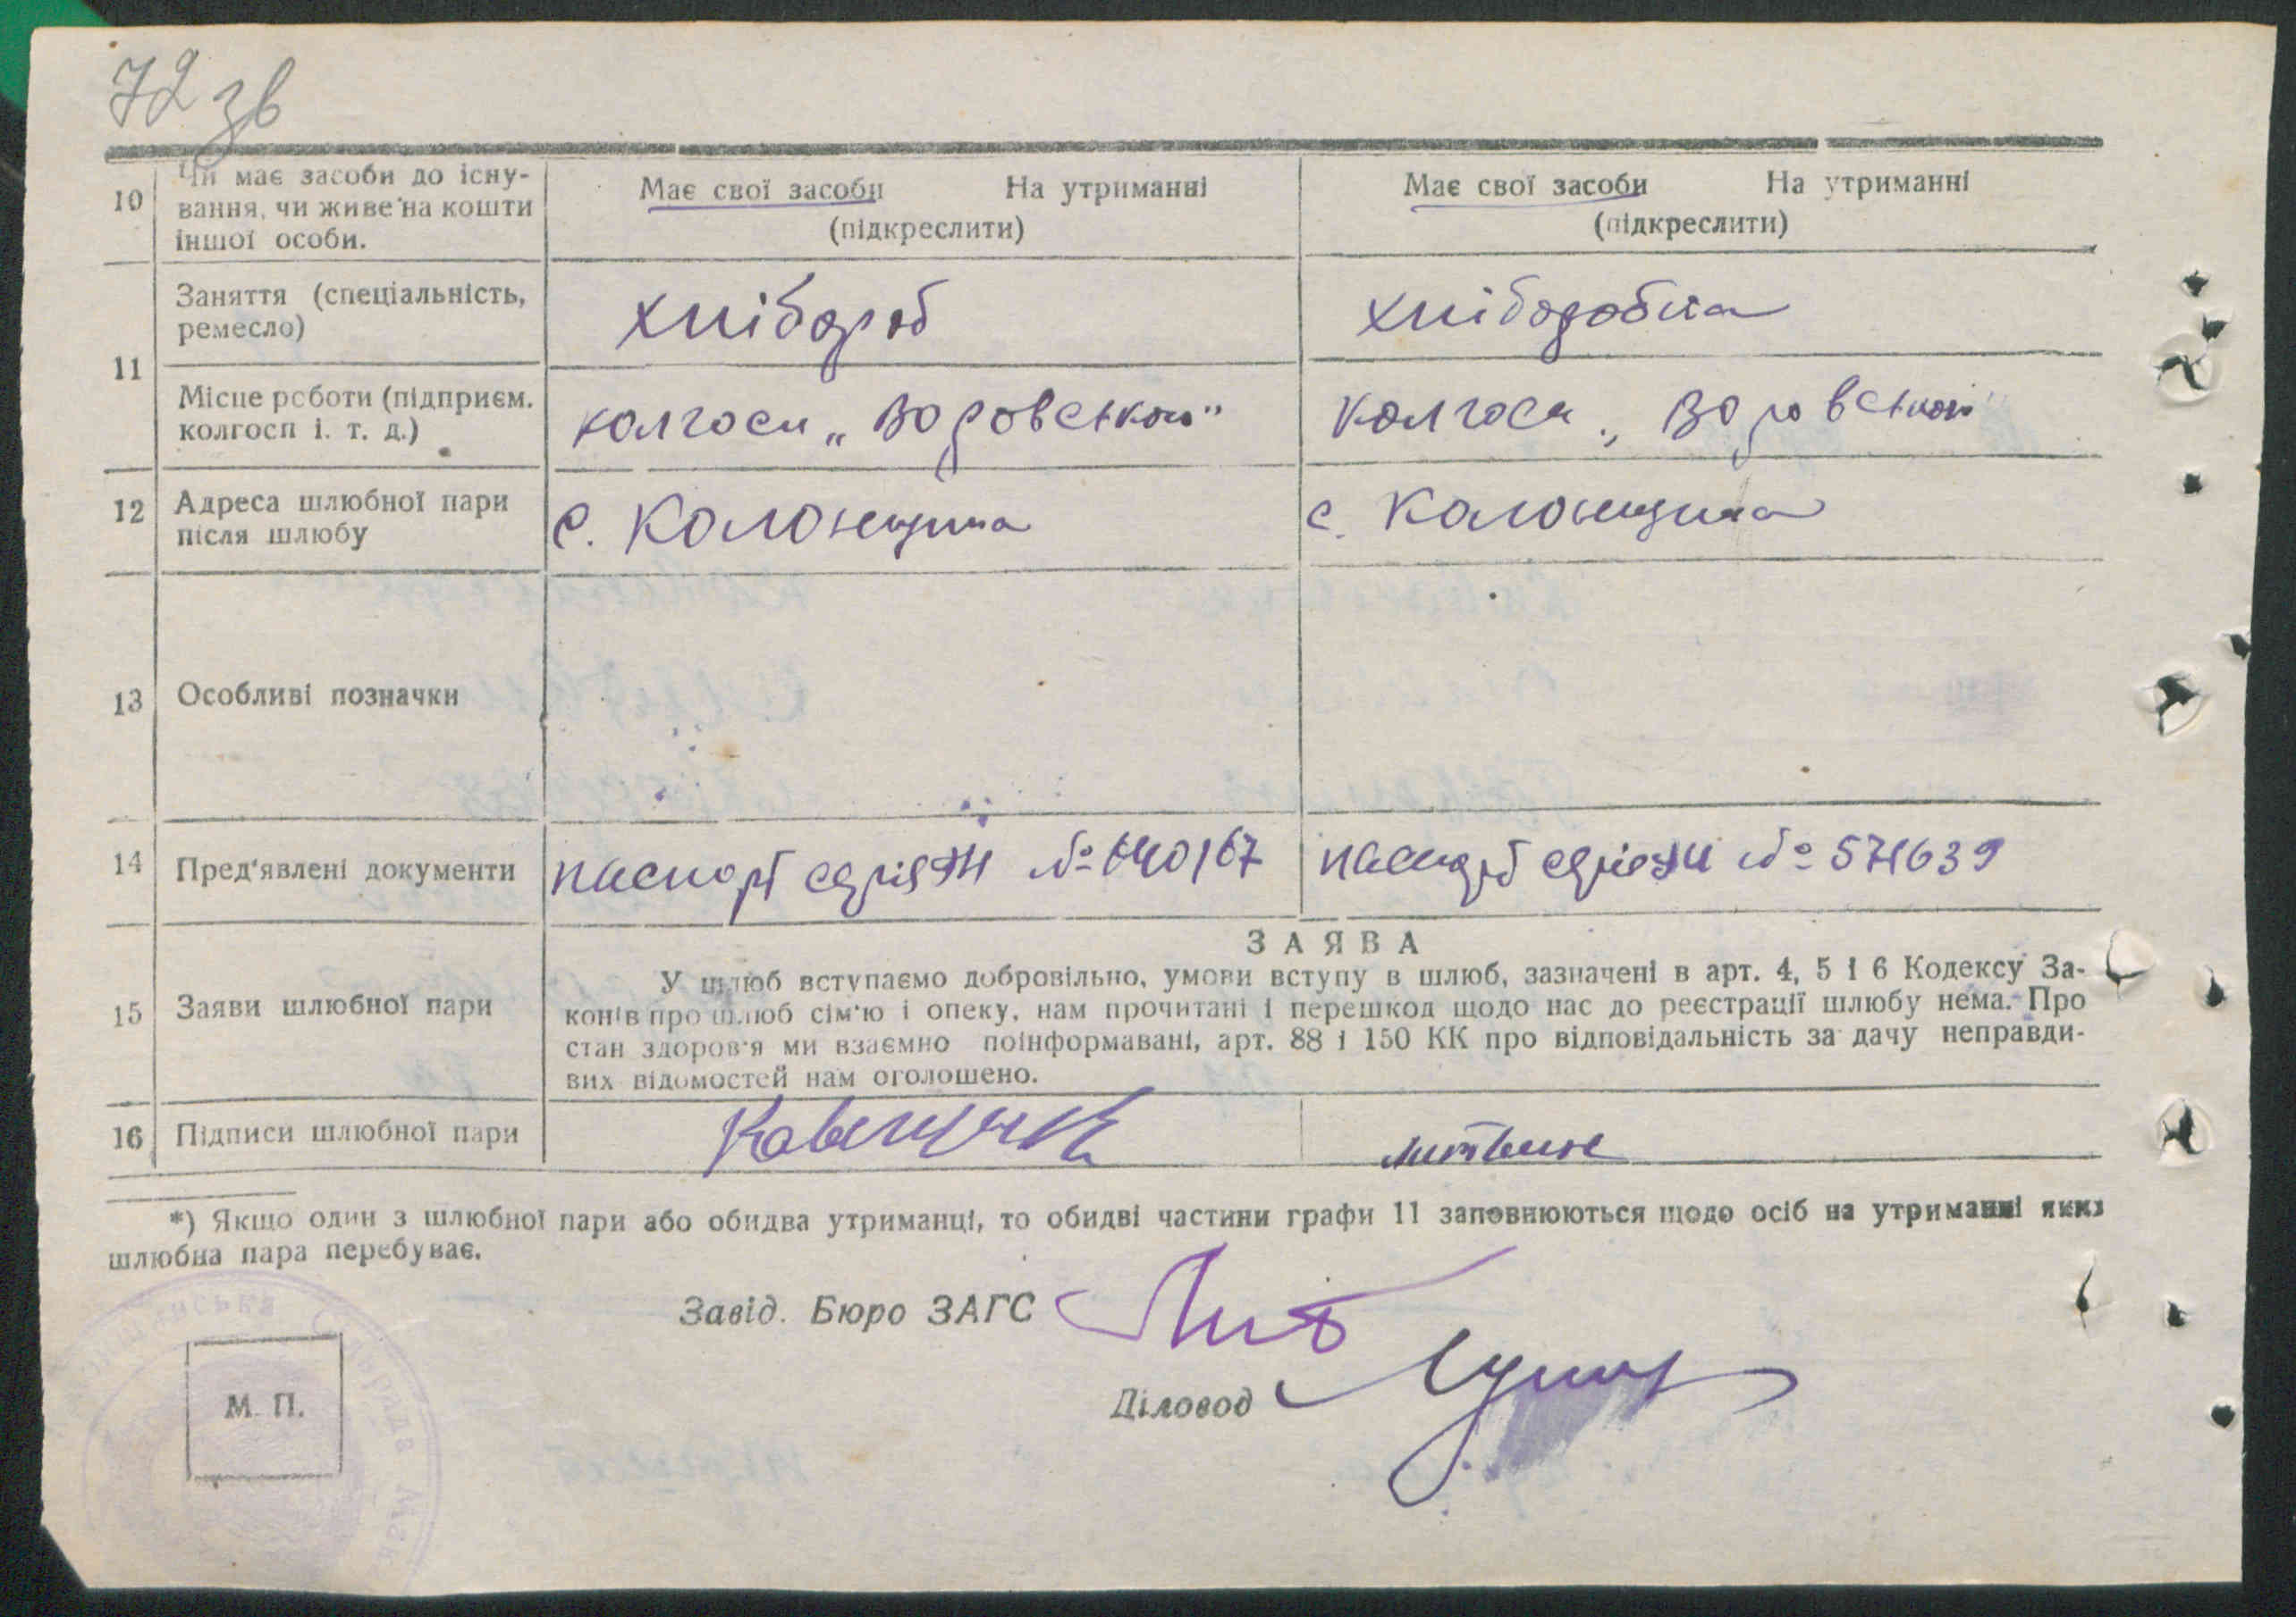 72 зв
10 Чи має засоби до існу-
вання, чи живе на кошти
іншої особи.
Має свої засоби На утриманні
(підкреслити)
Має свої засоби На утриманні
(підкреслити)
11
Заняття (спеціальність,
ремесло)
хлібороб
хліборобка
Місце роботи (підприєм.
колгосп і. т. д.)
колгосп „Воровського"
колгосп „Воровського"
12 Адреса шлюбної пари
після шлюбу
с. Колонщина
с. Колонщина
13 Особливі позначки
14 Пред'явлені документи
паспорт серія № 640167
паспорт серія № 571639
15 Заяви шлюбної пари
ЗАЯВА
У шлюб вступаємо добровільно, умови вступу в шлюб, зазначені в арт. 4, 5 і 6 Кодексу За-
конів про шлюб сім'ю і опеку, нам прочитані і перешкод щодо нас до реєстрації шлюбу нема. Про
стан здоров'я ми взаємно поінформавані, арт. 88 і 150 КК про відповідальність за дачу неправди-
вих відомостей нам оголошено.
16 Підписи шлюбної пари
*) Якщо один з шлюбної пари або обидва утриманці, то обидві частини графи 11 заповнюються щодо осіб на утриманні яких
шлюбна пара перебуває.
Завід. Бюро ЗАГС
Діловод
М. П.